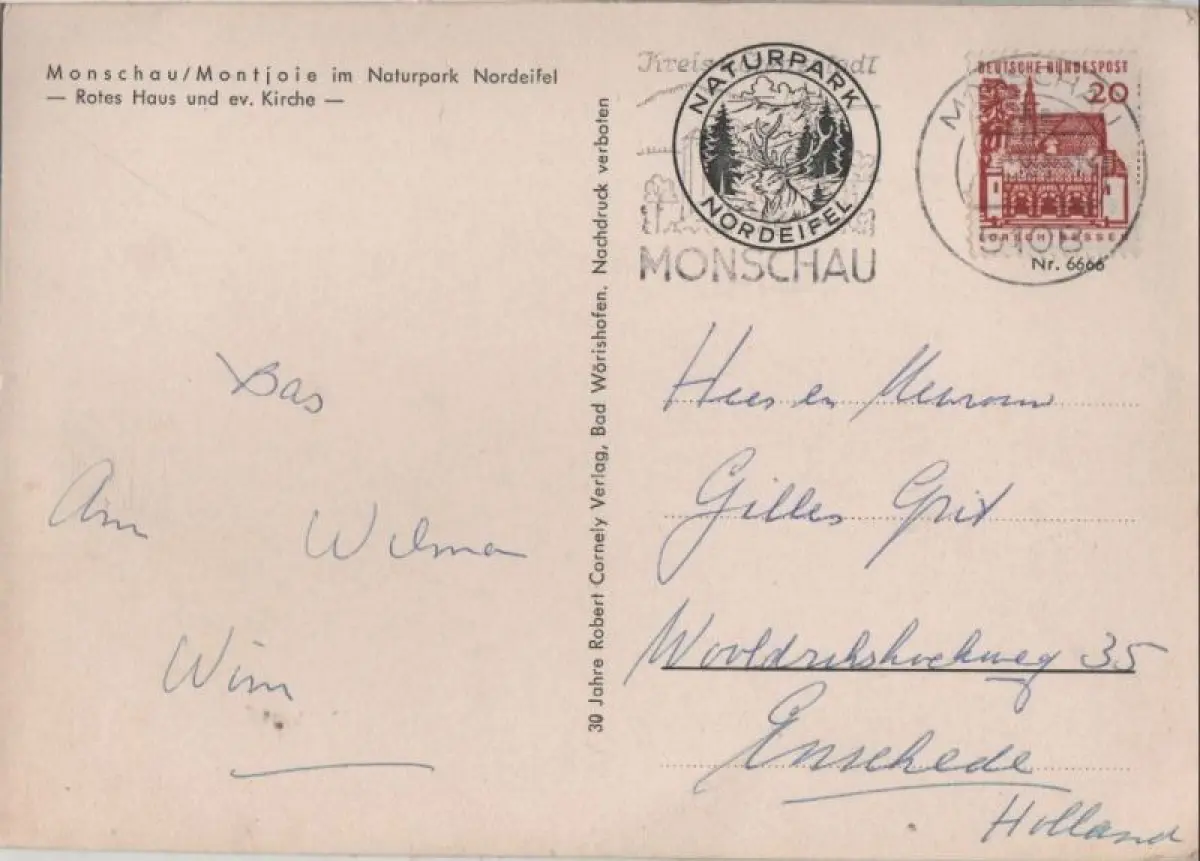 Monschau/Montjoie im Naturpark Nordeifel
— Rotes Haus und ev. Kirche —
30 Jahre Robert Cornely Verlag, Bad Wörishofen. Nachdruck verboten
NATURPARK
NORDEIFEL
Kreis
MONSCHAU
DEUTSCHE BUNDESPOST
20
LORSCH HESSEN
Nr. 6666
Bas
Wilma
Wim
en
Gilles
35
Enschede
Holland